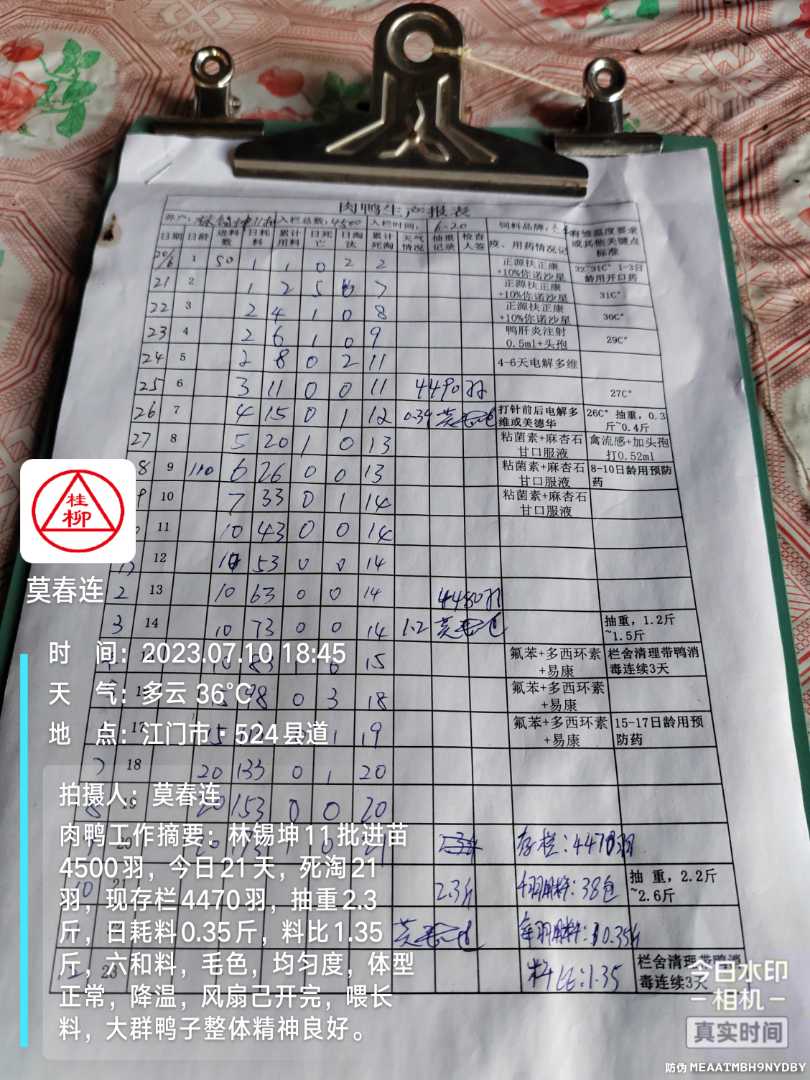 肉鸭生产报表
养户: 林锡坤11批 入栏总数: 4500 入栏时间: 6-20 饲料品牌:
日期 日龄 进料数 日耗料 累计用料 日死亡 日淘汰 累计死淘 天气情况 抽重记录 检查人签 疫、用药情况记 有效温度要求或其他关键点标准
20/6 1 50 1 1 0 2 2 正源扶正康+10%你诺沙星 32~31C° 1-3日龄用开口药
21 2 1 2 5 7 正源扶正康+10%你诺沙星 31C°
22 3 2 4 1 0 8 正源扶正康+10%你诺沙星 30C°
23 4 2 6 1 0 9 鸭肝炎注射0.5ml+头孢 29C°
24 5 2 8 0 2 11 4-6天电解多维
25 6 3 11 0 0 11 4490羽 27C°
26 7 4 15 0 1 12 0.39 打针前后电解多维或美德华 26C° 抽重,0.3斤~0.4斤
27 8 5 20 1 0 13 粘菌素+麻杏石甘口服液 禽流感+加头孢打0.52ml
8 9 110 6 26 0 0 13 粘菌素+麻杏石甘口服液 8-10日龄用预防药
9 10 7 33 0 1 14 粘菌素+麻杏石甘口服液
11 10 43 0 0 14
12 10 53 0 0 14
2 13 10 63 0 0 14 4480羽
3 14 10 73 0 0 14 1.2 抽重,1.2斤~1.5斤
15 氟苯+多西环素+易康 栏舍清理带鸭消毒连续3天
98 0 3 18 氟苯+多西环素+易康
17 1 19 氟苯+多西环素+易康 15-17日龄用预防药
7 18 20 133 0 1 20
8 19 20 153 0 0 20
存栏:4470羽
10 21 2.3斤 38包 抽 重,2.2斤~2.6斤
0.35斤
料比:1.35 栏舍清理带鸭消毒连续3天
桂
柳
莫春连
时 间: 2023.07.10 18:45
天 气: 多云 36℃
地 点: 江门市·524县道
拍摄人: 莫春连
肉鸭工作摘要: 林锡坤11批进苗
4500羽,今日21天,死淘21
羽,现存栏4470羽,抽重2.3
斤,日耗料0.35斤,料比1.35
斤,六和料,毛色,均匀度,体型
正常,降温,风扇已开完,喂长
料,大群鸭子整体精神良好。
今日水印
相机
真实时间
防伪 MEAATMBH9NYDBY